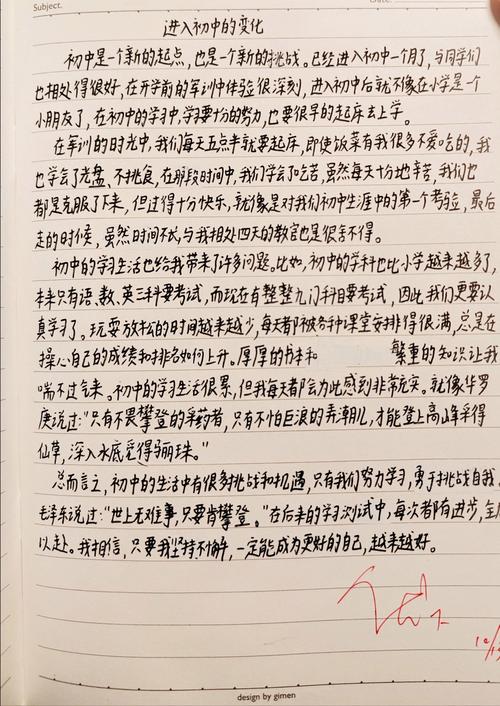 Subject.
Date:
进入初中的变化
初中是一个新的起点，也是一个新的挑战。已经进入初中一个月了，与同学们
也相处得很好，在开学前的军训中体验很深刻，进入初中后就不像在小学是一个
小朋友了，在初中的学习中，学习要十分的努力，也要很早的起床去上学。
在军训的时光中，我们每天五点半就要起床，即使饭菜有我很多不爱吃的，我
也学会了光盘、不挑食，在那段时间中，我们学会了吃苦，虽然每天十分地辛苦，我们也
都是克服了下来，但过得十分快乐，就像是对我们初中生涯中的第一个考验，最后
走的时候，虽然时间不长，与我相处四天的教官也是很舍不得。
初中的学习生活也给我带来了许多问题。比如，初中的学科也比小学越来越多了，
本来只有语、数、英三科要考试，而现在有整整九门科目要考试，因此我们更要认
真学习了。玩耍放松的时间越来越少，每天都被各种课堂安排得很满，总是在
操心自己的成绩和排名如何上升。厚厚的书本和 繁重的知识让我
喘不过气来。初中的学习生活很累，但我每天都会为此感到非常充实。就像华罗
庚说过："只有不畏攀登的采药者，只有不怕巨浪的弄潮儿，才能登上高山峰采得
仙草，深入水底觅得骊珠。"
总而言之，初中的生活中有很多挑战和机遇，只有我们努力学习，勇于挑战自我，
毛泽东说过："世上无难事，只要肯攀登。"在后来的学习测试中，每次都有进步，全力
以赴。我相信，只要我坚持不懈，一定能成为更好的自己，越来越好。
design by gimen